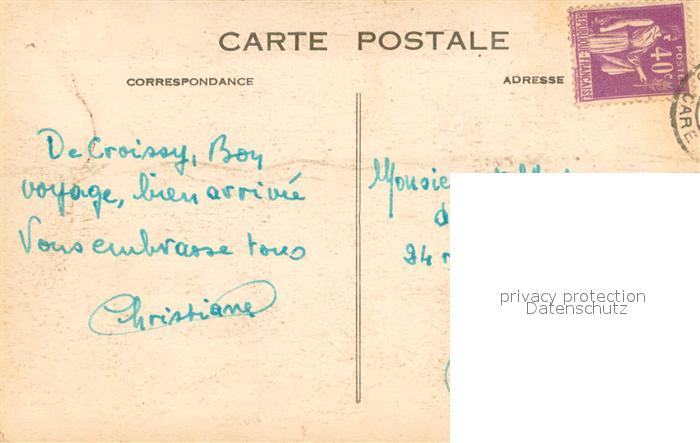 CARTE POSTALE
CORRESPONDANCE
ADRESSE
POSTES
40c
REPUBLIQUE FRANCAISE
CARE
De Croissy, Bon
voyage, bien arrivée
Vous embrasse tous
Christiane
Monsie
24 r
privacy protection
Datenschutz